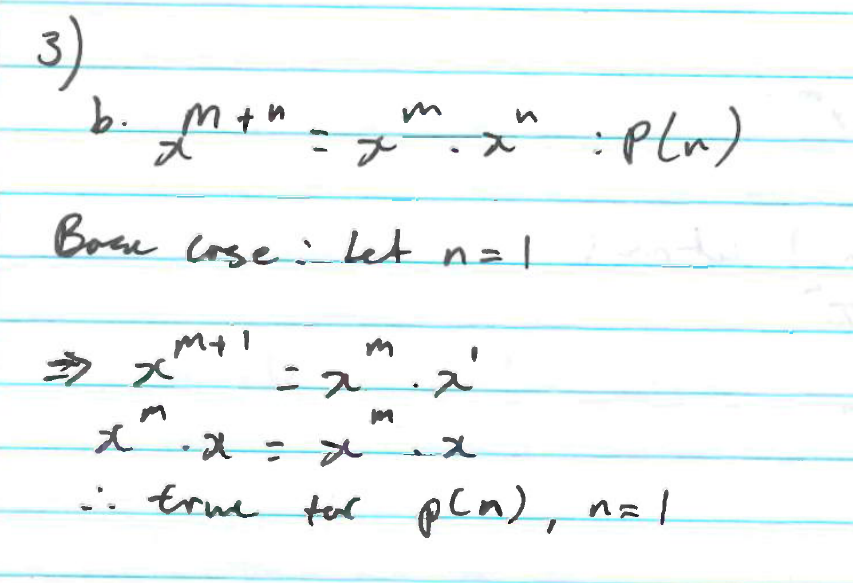 3)
b. x^{m+n} = x^m . x^n : P(n)
Base case : Let n=1
⇒ x^{m+1} = x^m . x^1
x^m . x = x^m . x
∴ true for p(n), n=1